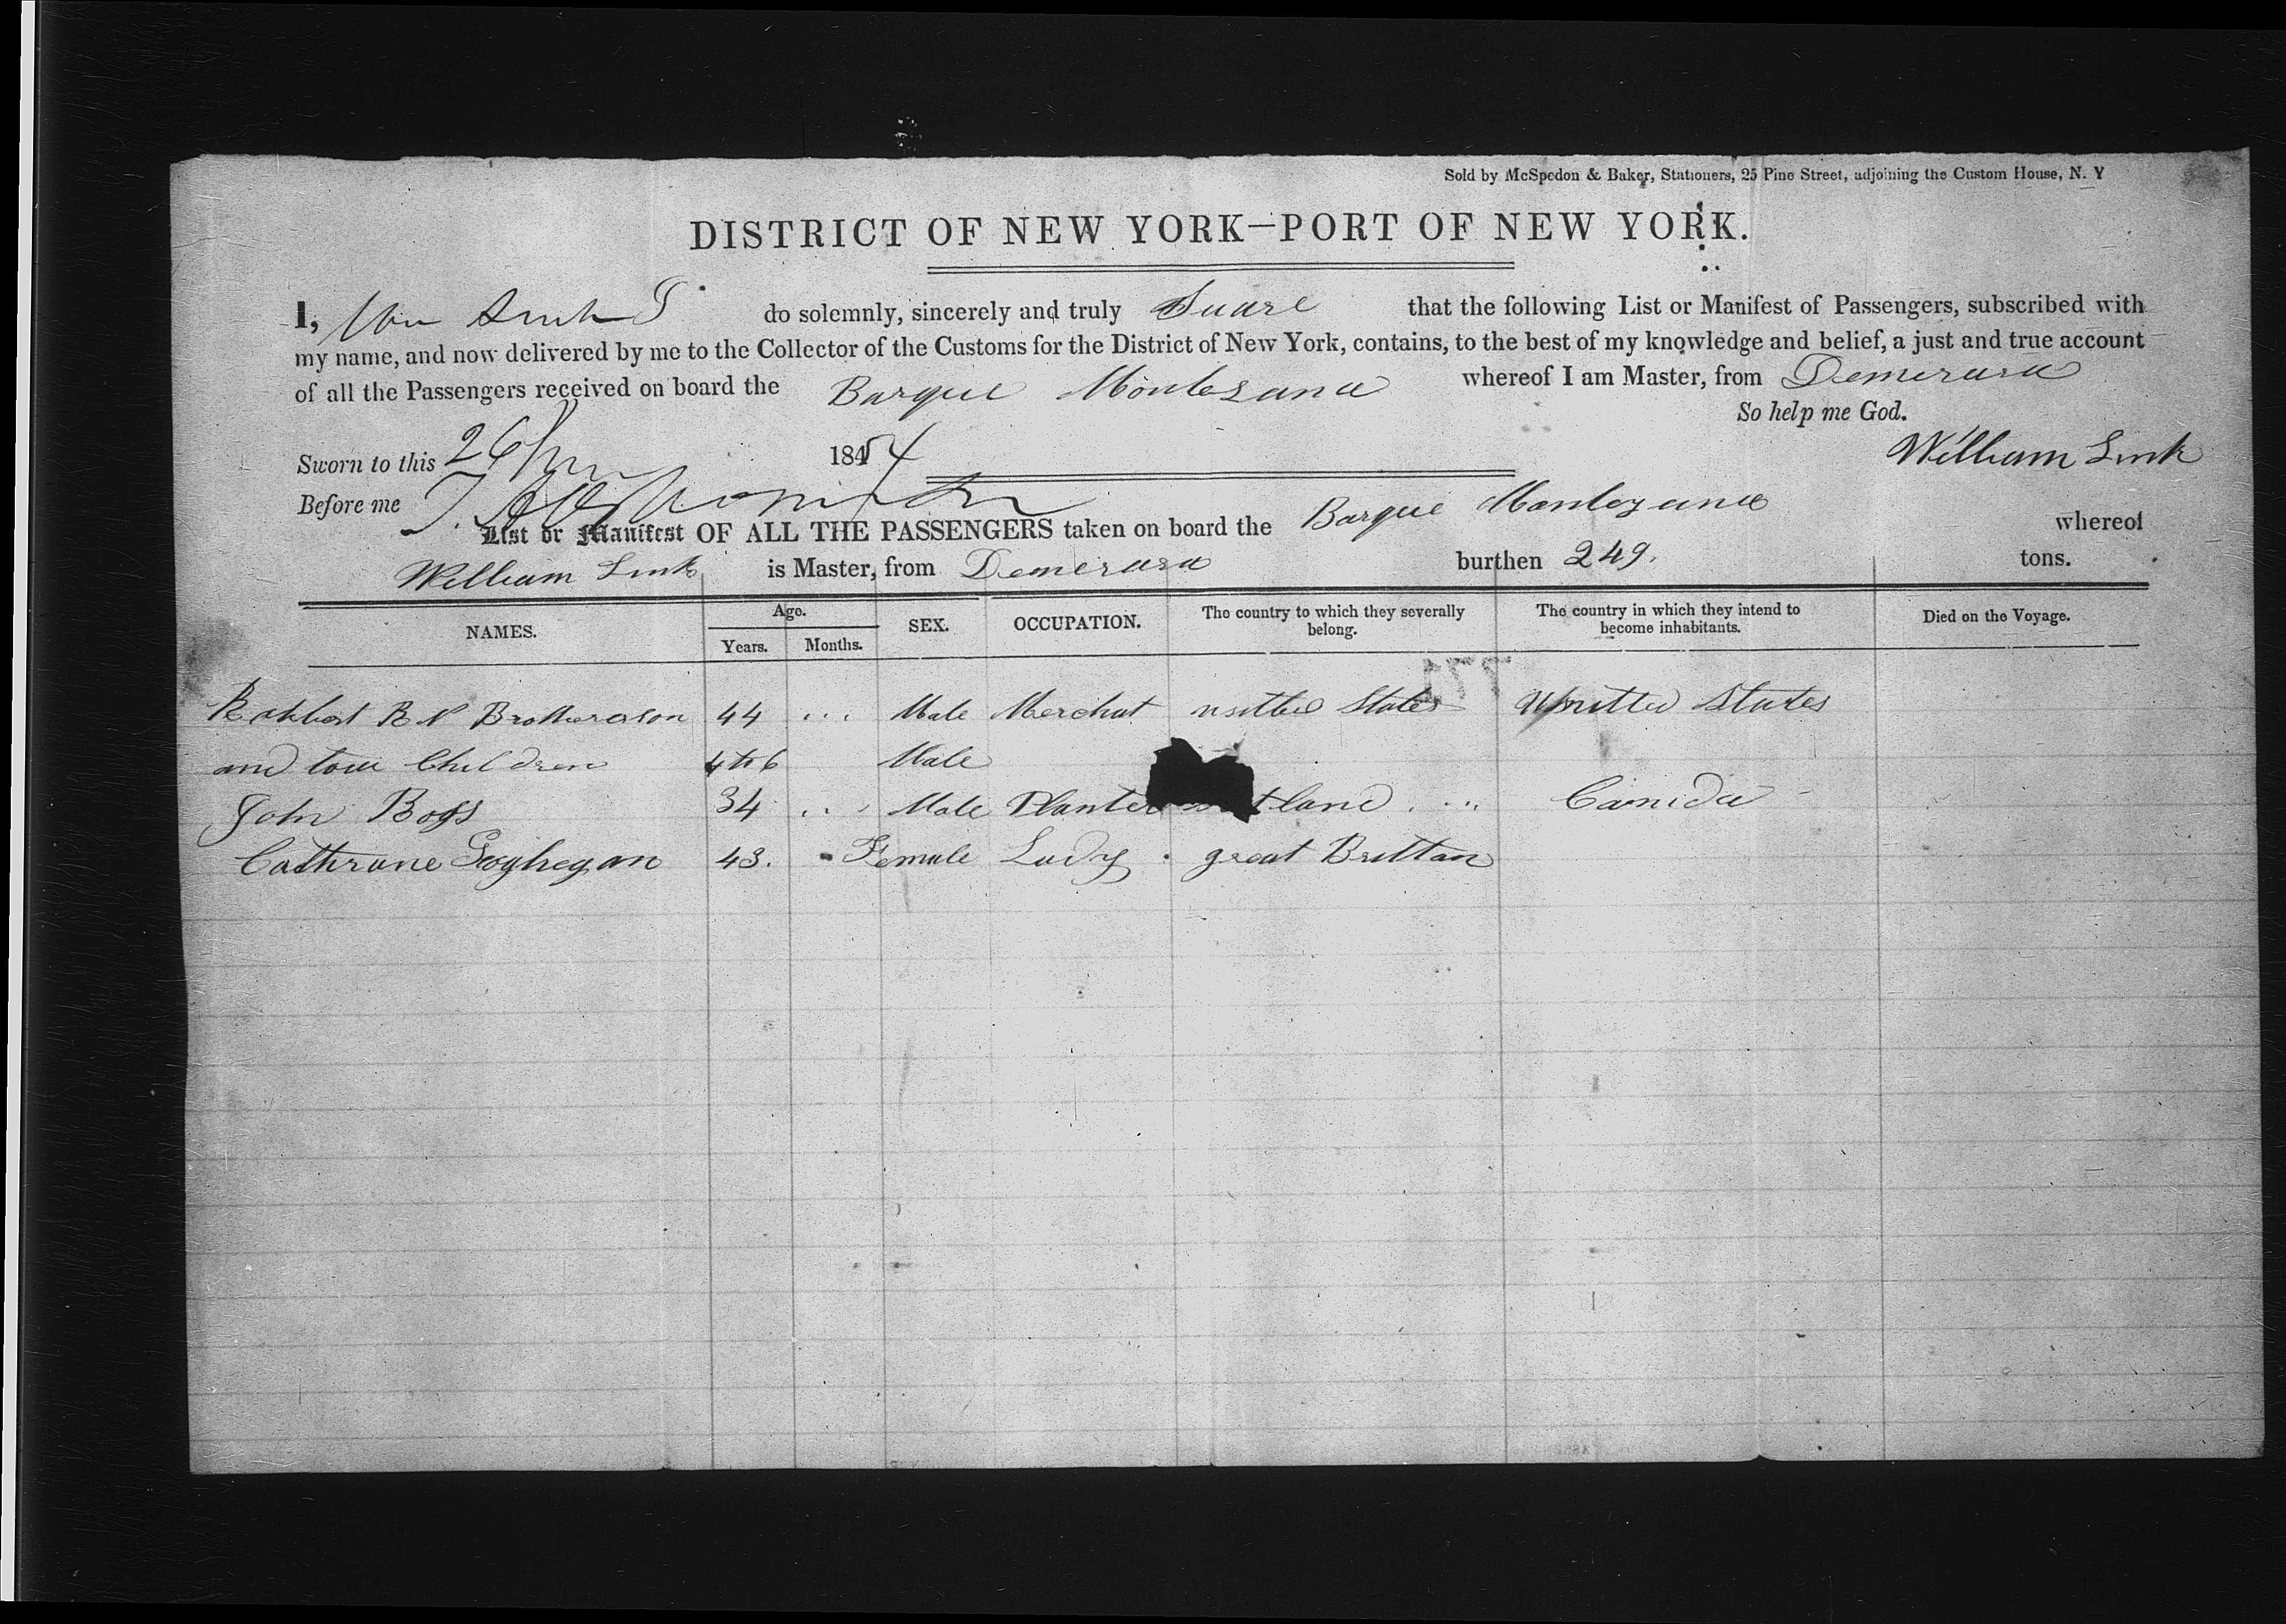 Sold by McSpedon & Baker, Stationers, 25 Pine Street, adjoining the Custom House, N. Y
DISTRICT OF NEW YORK—PORT OF NEW YORK.
I, Wm do solemnly, sincerely and truly Suare that the following List or Manifest of Passengers, subscribed with
my name, and now delivered by me to the Collector of the Customs for the District of New York, contains, to the best of my knowledge and belief, a just and true account
of all the Passengers received on board the Barque Montezuna whereof I am Master, from Demerara
So help me God.
Sworn to this 26 1854 William Link
Before me
List or Manifest OF ALL THE PASSENGERS taken on board the Barque Montezuna whereof
William Link is Master, from Demerara burthen 249. tons.
NAMES. Age. Years. Months. SEX. OCCUPATION. The country to which they severally belong. The country in which they intend to become inhabitants. Died on the Voyage.
R N Brotherson 44 ... Male Merchat States States
and tow Children 4 to 6 Male
John Boss 34 .. Male Planter land Camida
Cathrane Goghegan 43. Female Lady great Brittan